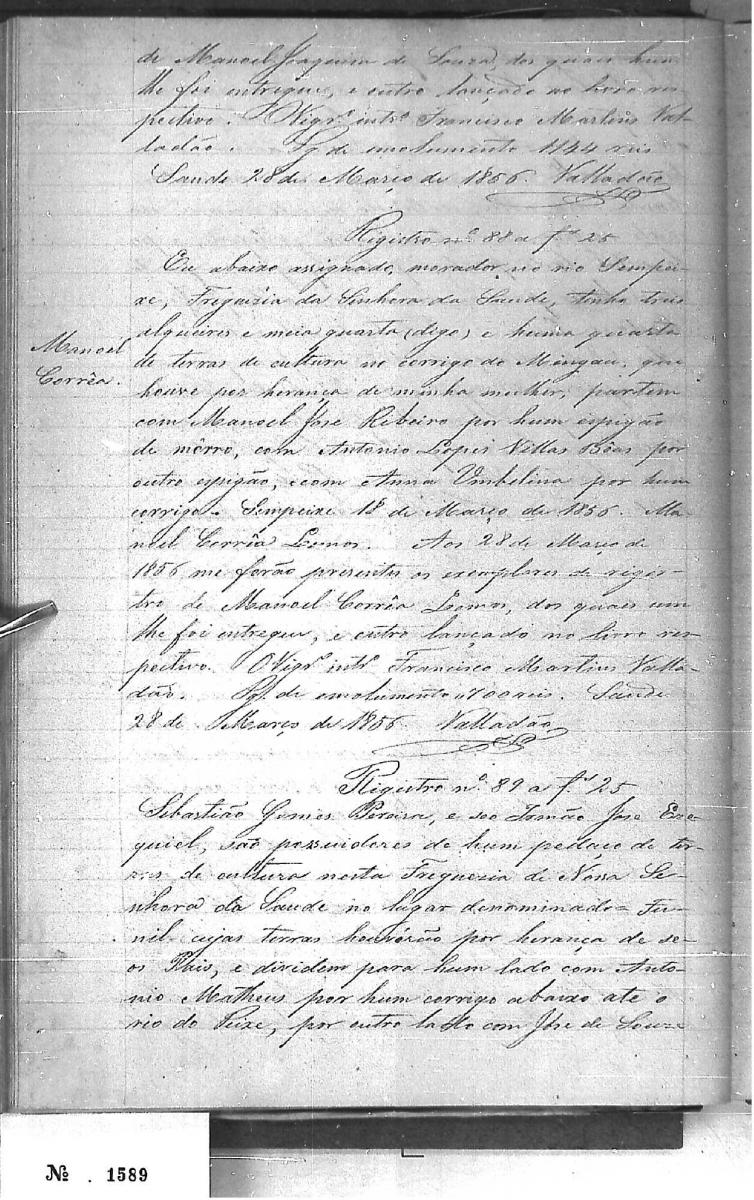 de Manoel Joaquim de Souza, dos quais hum
lhe foi entregue, e outro lançado no livro res-
pectivo. O Vigrº intrº Francisco Martins Val-
ladão. Pg. de emolumento 1144 reis
Saude 28 de Março de 1856. Valladão
Registro nº 88 a fs 25
Eu abaixo assignado, morador no rio Sempei-
xe, Freguezia da Senhora da Saude, tenho tres
alqueires e meia quarta (digo) e huma quarta
Manoel
Corrêa.
de terras de cultura no corrigo do Mingau, que
houve por herança de minha mulher, partem
com Manoel Jose Ribeiro por hum espigão
de môrro, com Antonio Lopes Villas Bôas por
outro espigão, e com Anna Umbelina por hum
corrigo. Sempeixe 18 de Março de 1856. Ma-
noel Corrêa Lemos. Aos 28 de Março de
1856 me forão presentes os exemplares de regis-
tro de Manoel Corrêa Lemos, dos quais um
lhe foi entregue, e outro lançado no livro res-
pectivo. O Vigrº intrº Francisco Martins Valla-
dão. Pg. de emolumento reis. Saude
28 de Março de 1856. Valladão
Registro nº 89 a fs 25
Sebastião Gomes Pereira, e seo Irmão Jose Eze-
quiel, são possuidores de hum pedaço de ter-
ras de cultura nesta Freguezia de Nossa Se-
nhora da Saude no lugar denominado = Fu-
nil cujas terras houverão por herança de se-
os Pais, e dividem para hum lado com Anto-
nio Matheus por hum corrigo abaixo ate o
rio do Peixe, por outro lado com Jose de Souza
Nº . 1589